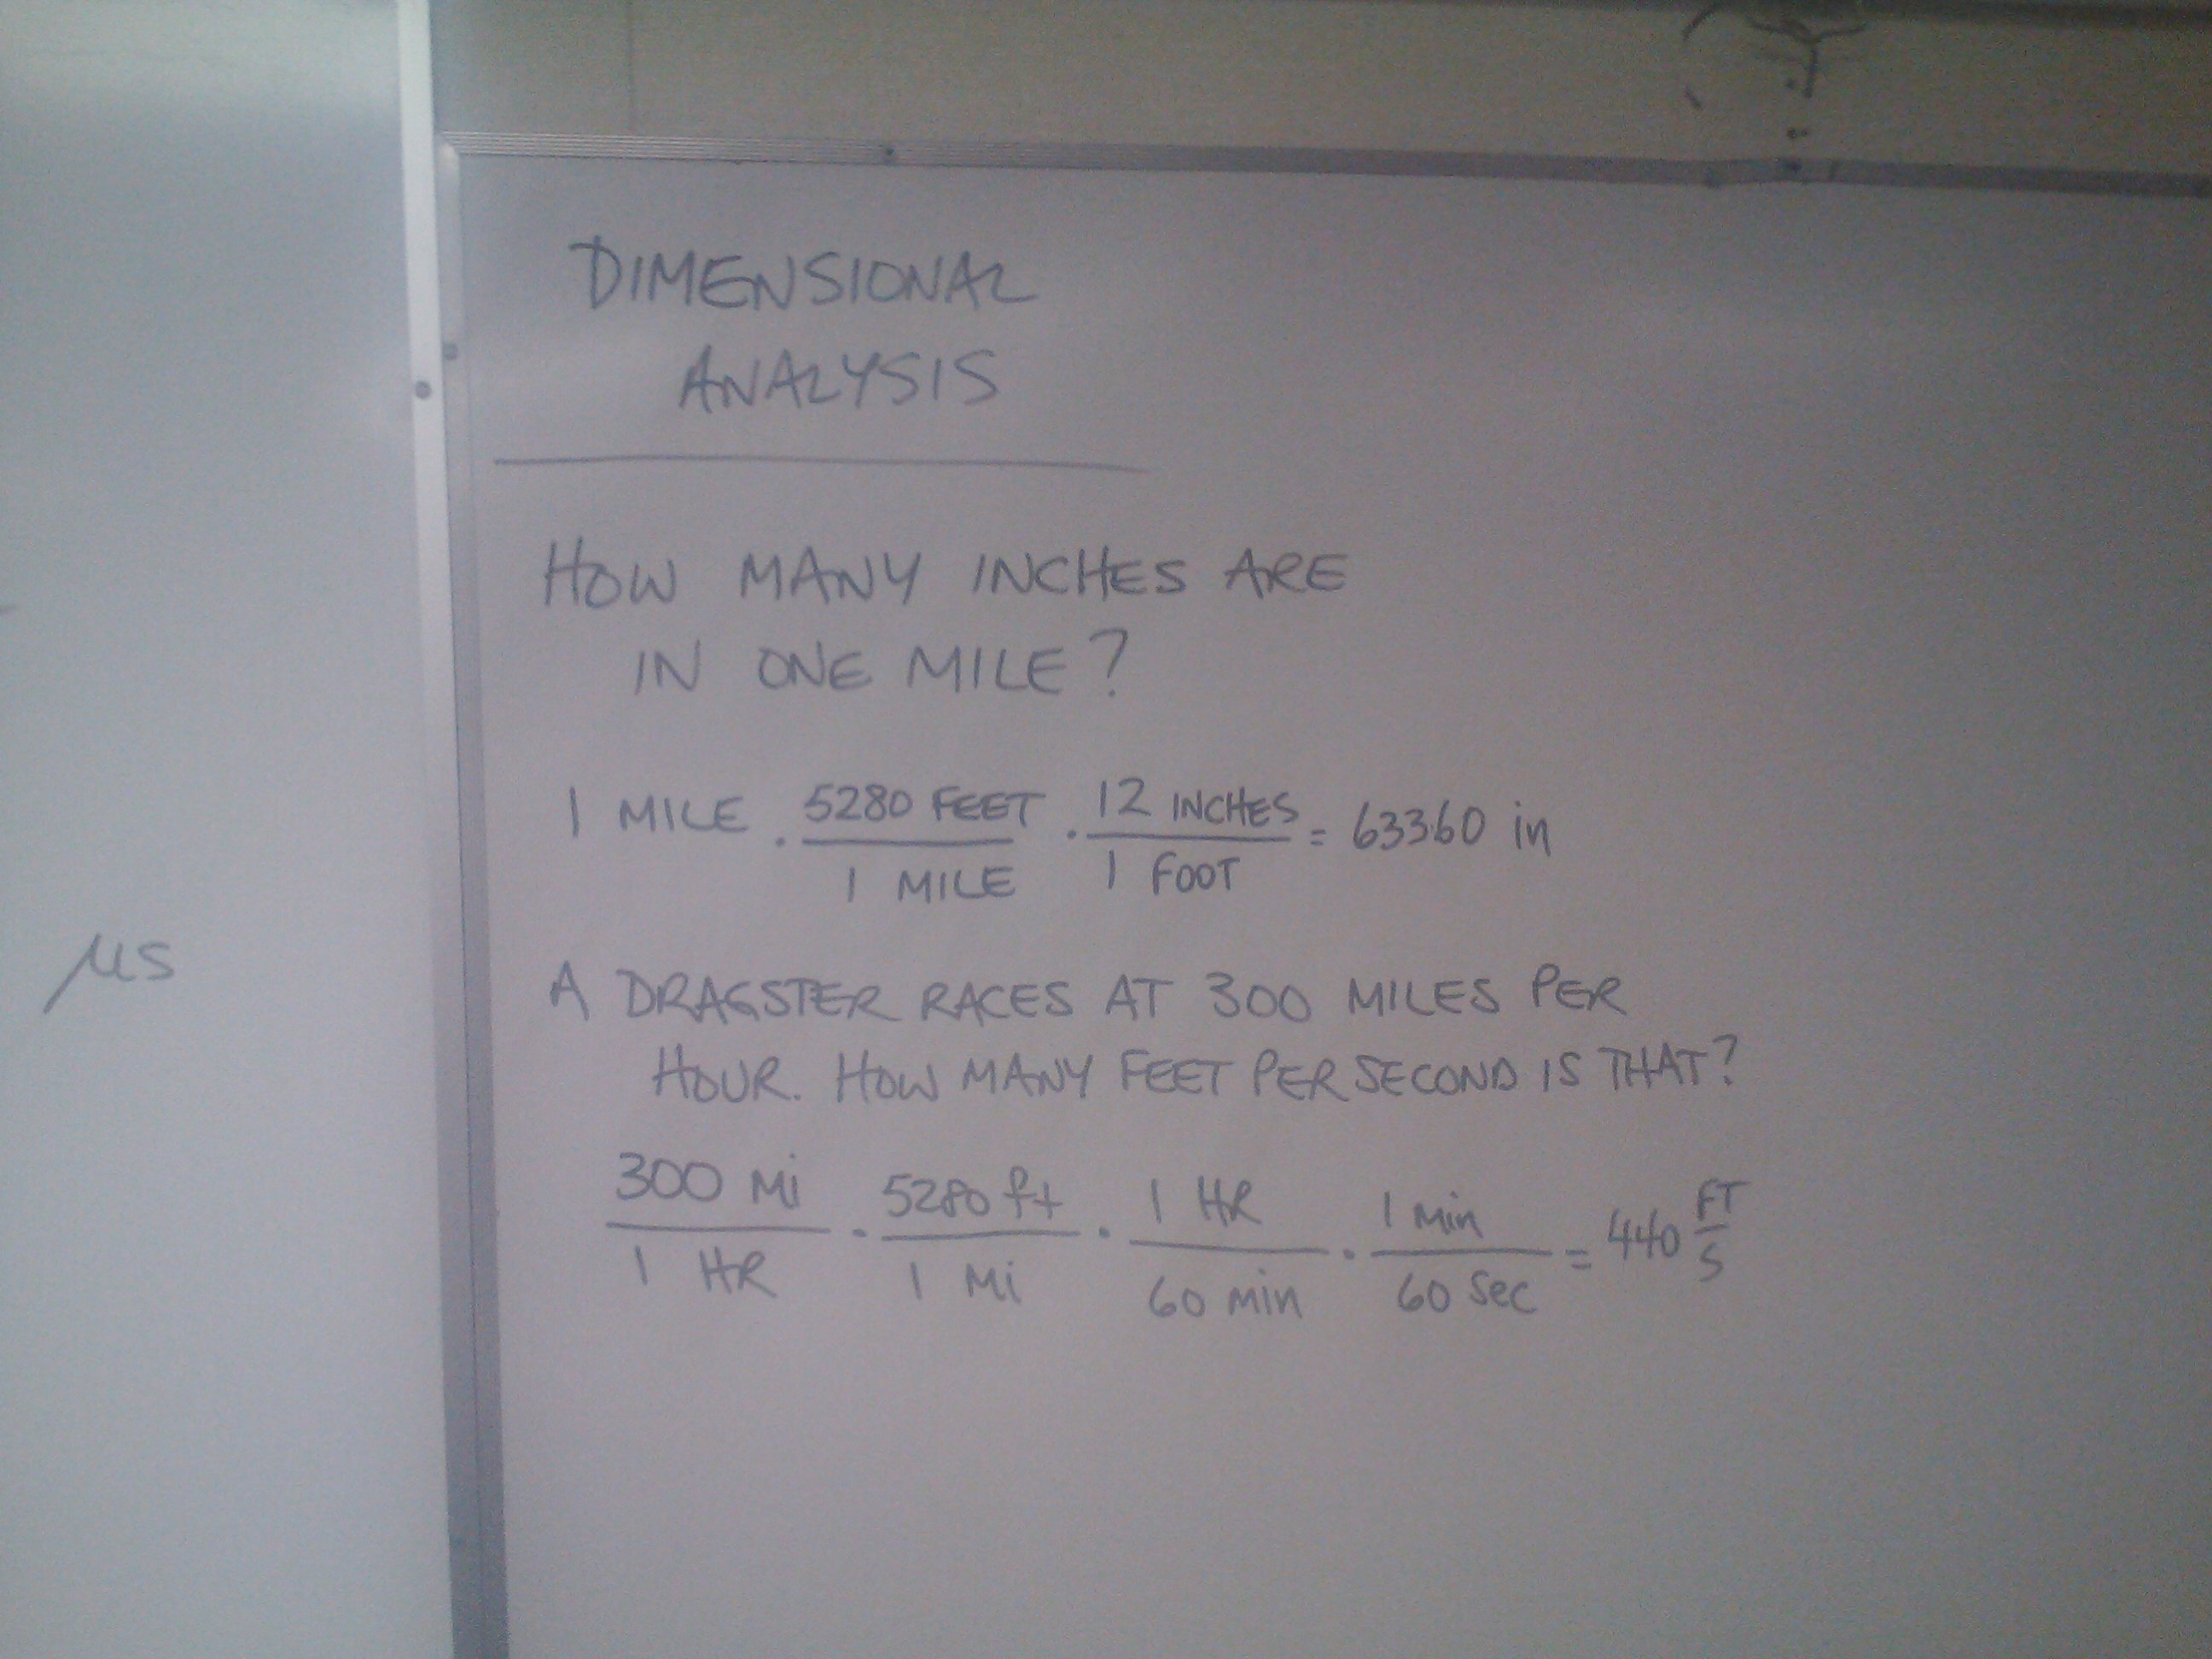 DIMENSIONAL
ANALYSIS
HOW MANY INCHES ARE
IN ONE MILE?
1 MILE · 5280 FEET / 1 MILE · 12 INCHES / 1 FOOT = 63360 in
µs
A DRAGSTER RACES AT 300 MILES PER
HOUR. HOW MANY FEET PER SECOND IS THAT?
300 Mi / 1 HR · 5280 ft / 1 Mi · 1 HR / 60 min · 1 min / 60 sec = 440 FT / S